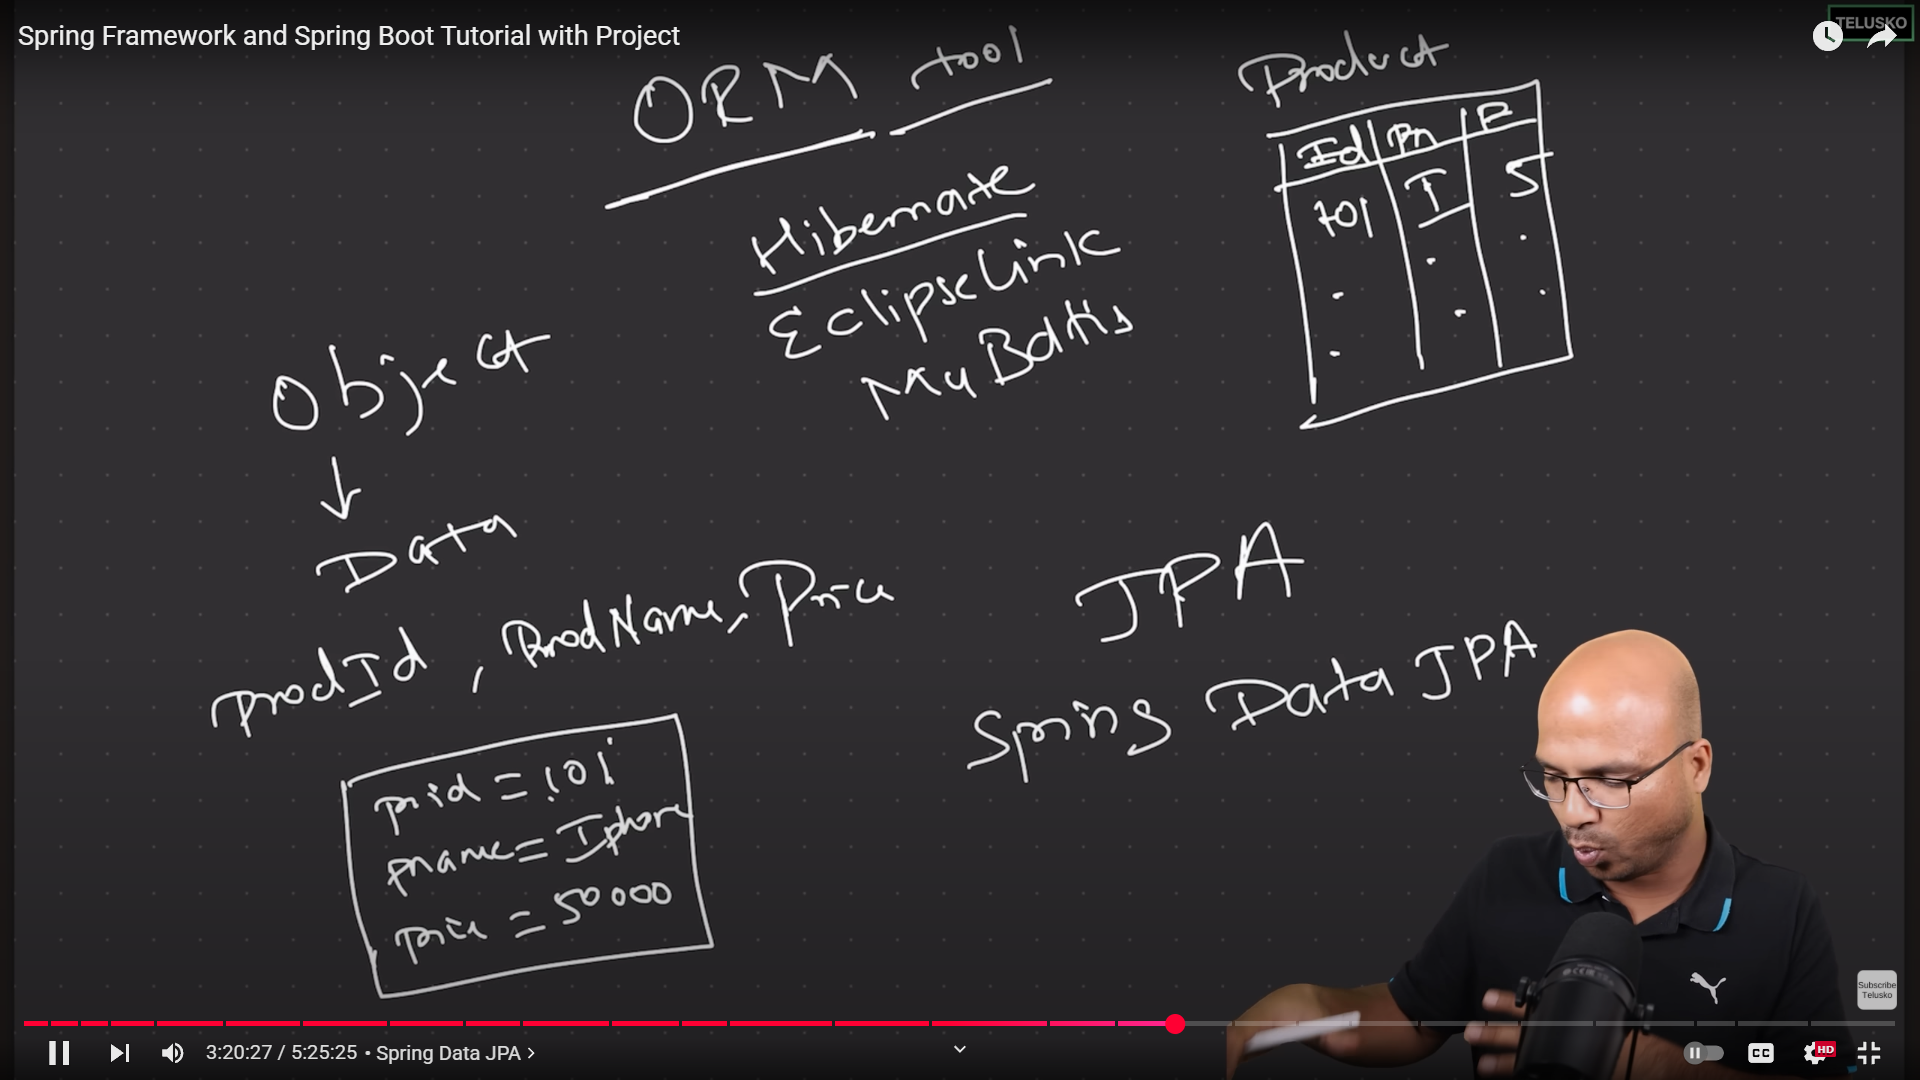 Spring Framework and Spring Boot Tutorial with Project
TELUSKO
ORM tool
Hibernate
EclipseLink
MyBatis
Product
Id Pn P
101 I 5
Object
↓
Data
prodId , ProdName, Price
prid = 101
pname = Iphone
price = 50000
JPA
Spring Data JPA
Subscribe
Telusko
3:20:27 / 5:25:25 • Spring Data JPA >
CC
HD